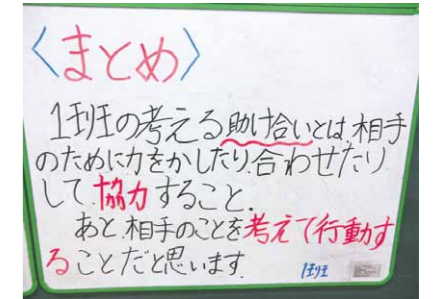 〈まとめ〉
1班の考える助け合いとは、相手
のために力をかしたり、合わせたり
して、協力すること。
あと、相手のことを考えて行動す
ることだと思います。
1班